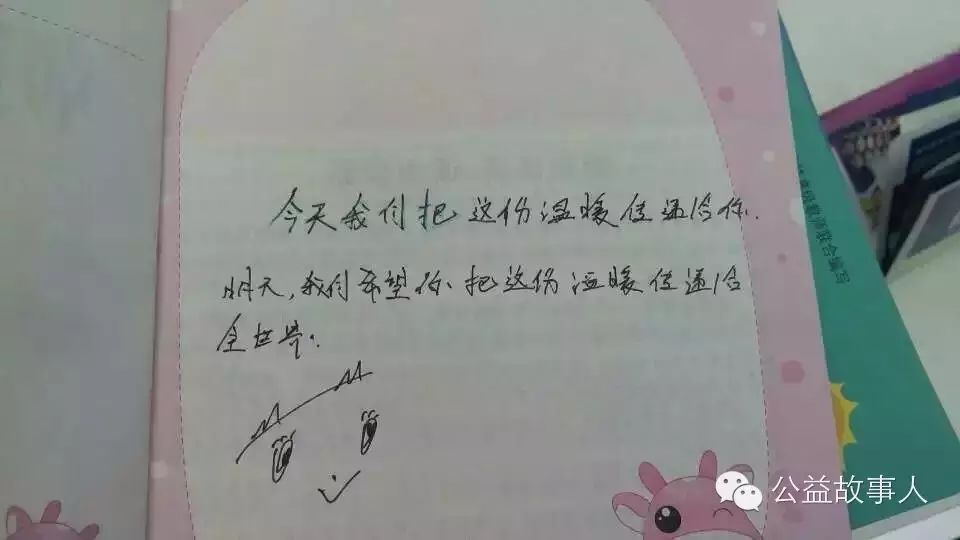 今天我们把这份温暖传递给你.
明天,我们希望你、把这份温暖传递给
全世界:
级教师联合编写
公益故事人